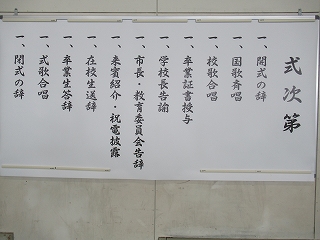 式次第
一、開式の辞
一、国歌斉唱
一、校歌合唱
一、卒業証書授与
一、学校長告諭
一、市長・教育委員会告辞
一、来賓紹介・祝電披露
一、在校生送辞
一、卒業生答辞
一、式歌合唱
一、閉式の辞